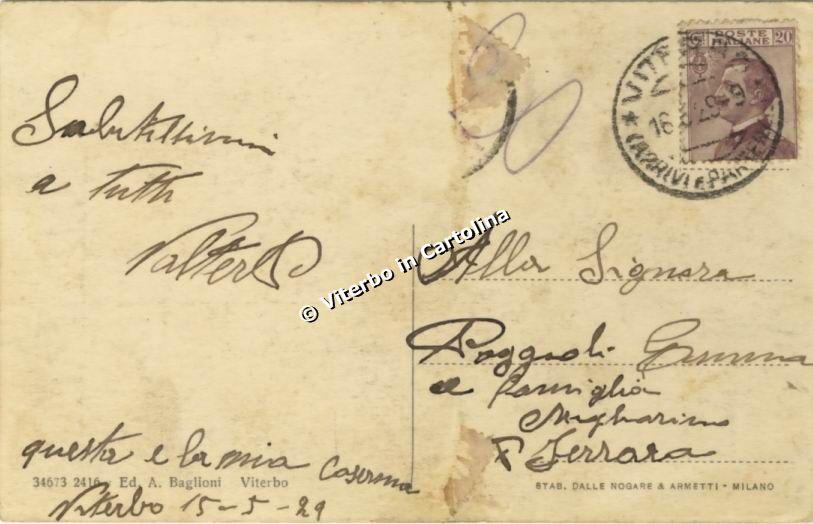 POSTE
ITALIANE 20
VITERBO
16 5 29
ARRIVI E PARTEN
Salutissimi
a tutti
Valter
© Viterbo in Cartolina
Alla Signora
Poggioli Gemma
e famiglia
Migliarino
Ferrara
questa e la mia Caserma
34673 2416 - Ed. A. Baglioni Viterbo
Viterbo 15-5-29
STAB. DALLE NOGARE & ARMETTI - MILANO